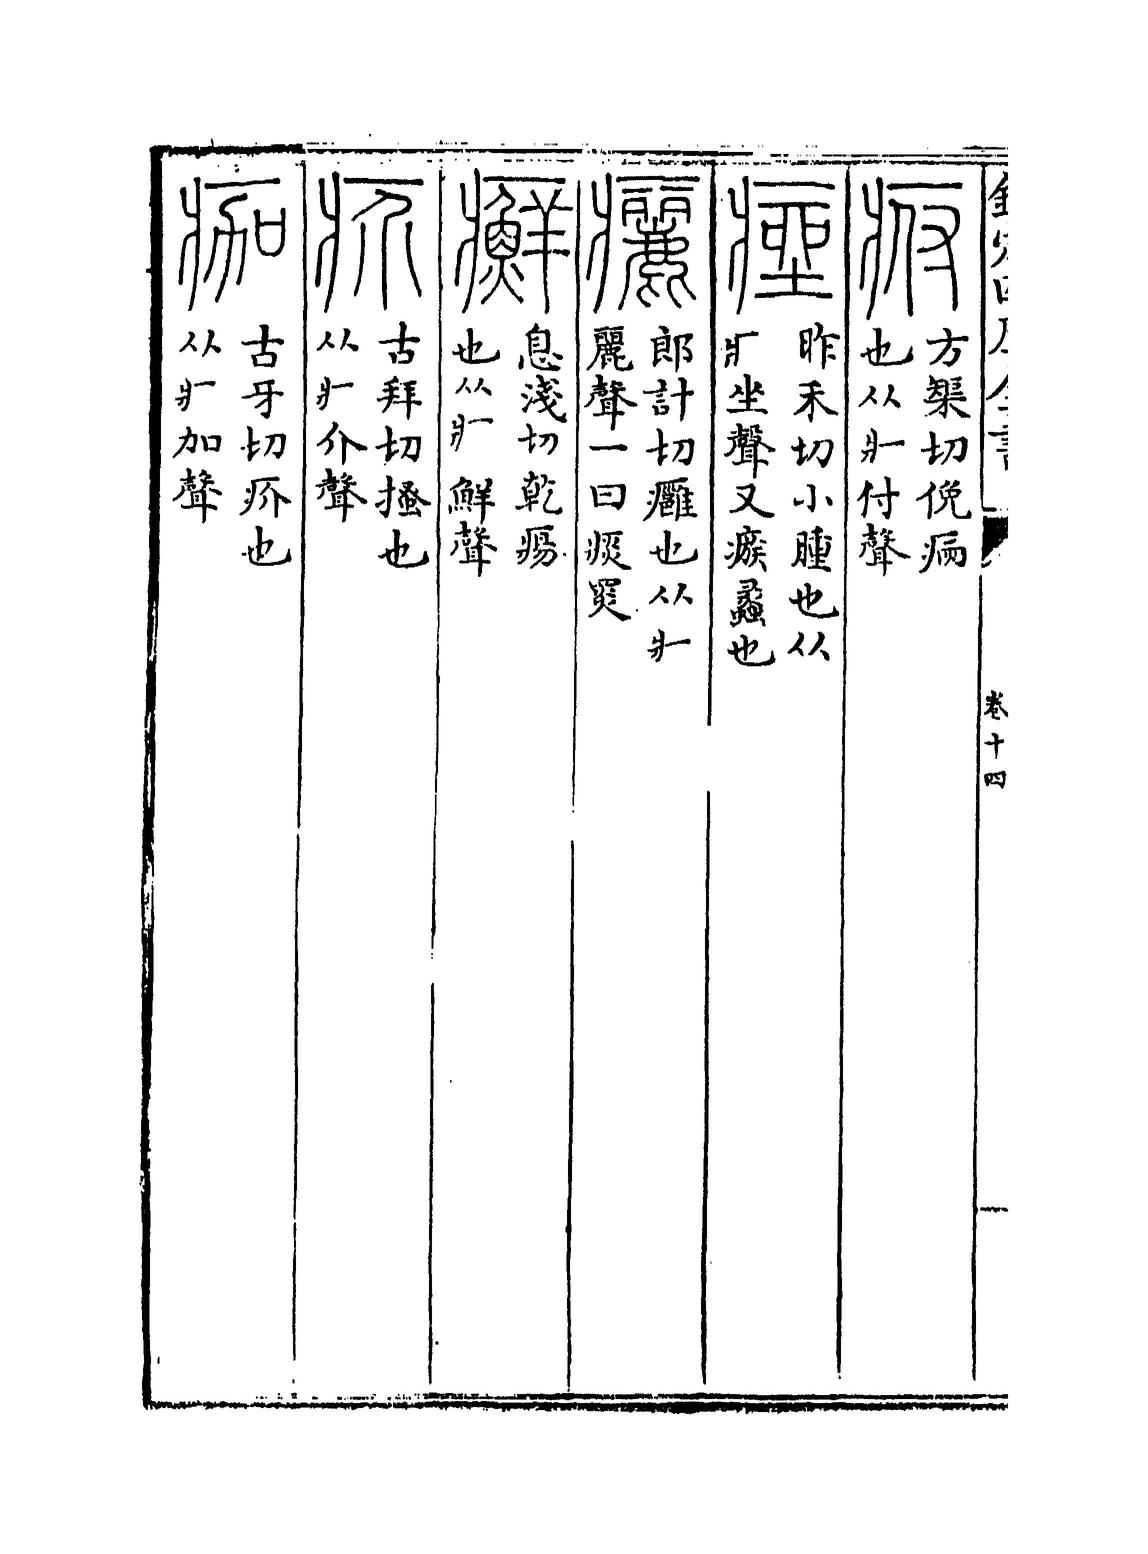 欽定四庫全書
卷十四
㾈
方榘切俛病
也从疒付聲
痤
昨禾切小腫也从
疒坐聲又瘯蠡也
㿛
郎計切癰也从疒
麗聲一曰
癬
息淺切乾瘍
也从疒鮮聲
疥
古拜切搔也
从疒介聲
痂
古牙切疥也
从疒加聲